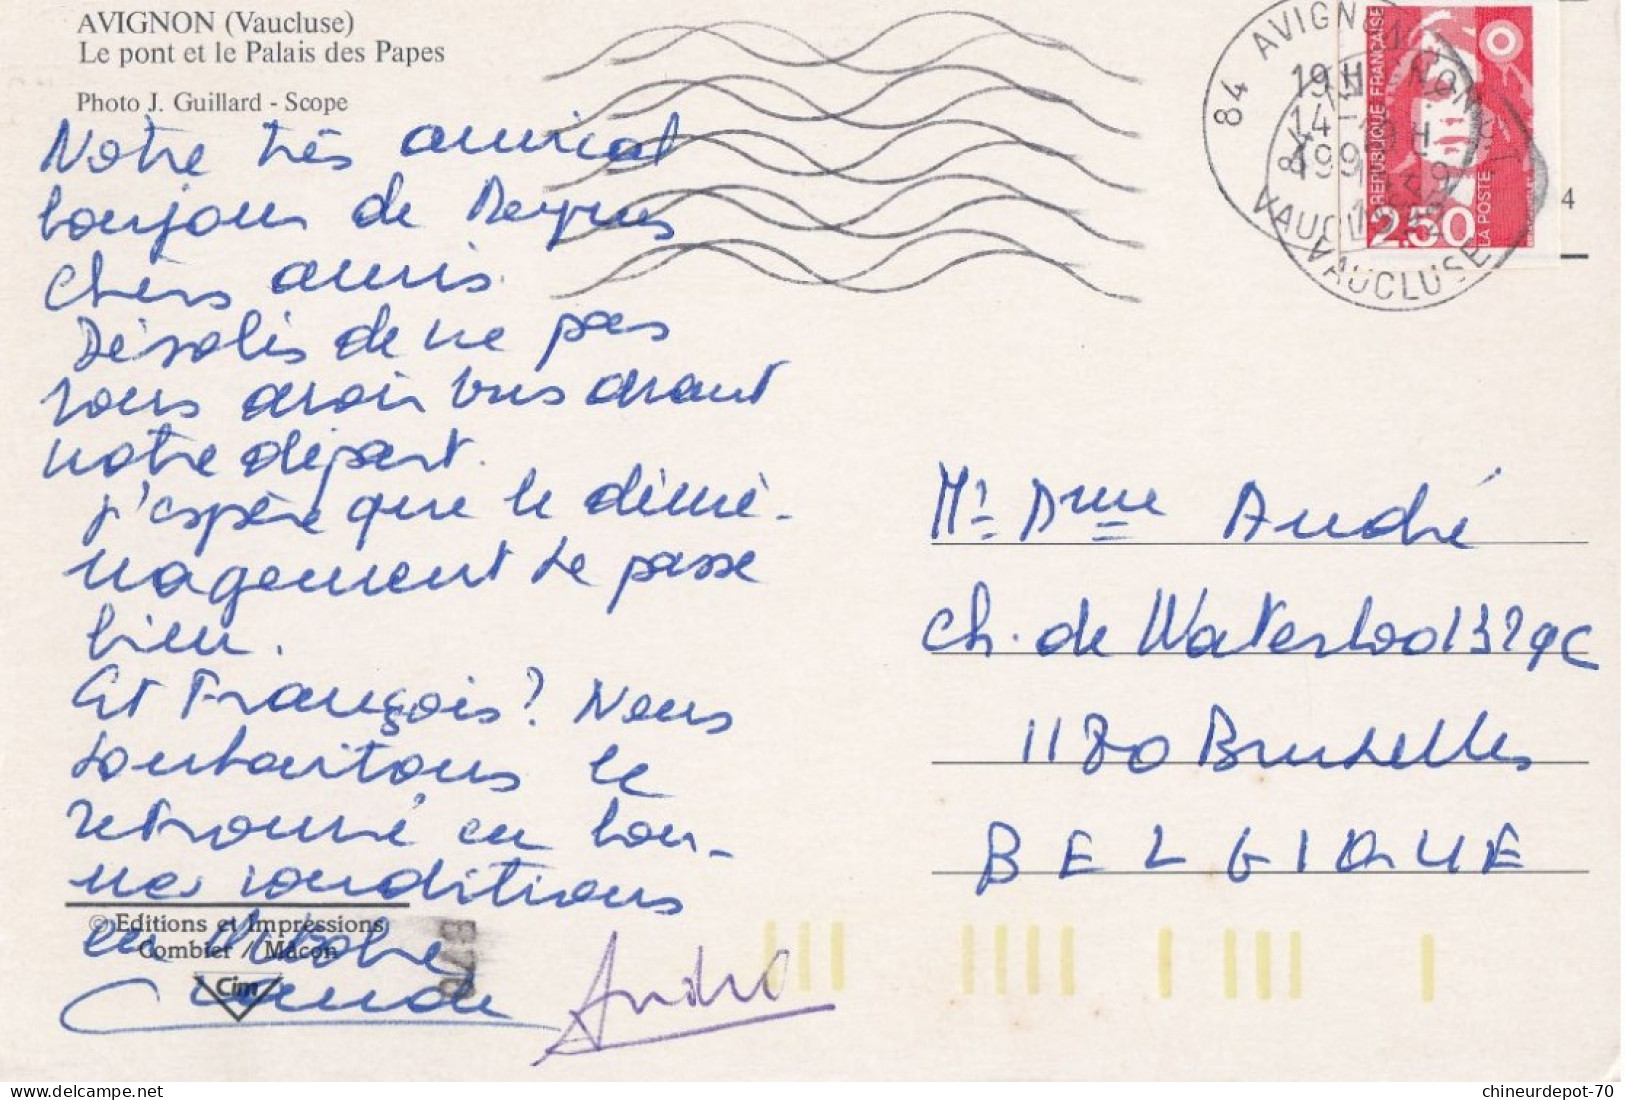 AVIGNON (Vaucluse)
Le pont et le Palais des Papes
Photo J. Guillard - Scope
Notre très amical
bonjour de
Chers amis.
Désolés de ne pas
vous avoir vus avant
notre départ.
J'espère que le démé-
nagement se passe
bien.
Et François? Nous
souhaitons le
retrouvé en bon-
nes conditions
en
© Editions et Impressions
Combier / Mâcon
Cim
André
84 AVIGNON
19H
14-
199
VAUCLUSE
REPUBLIQUE FRANÇAISE
2,50
LA POSTE
4
Mr Dme André
Ch. de Waterloo 1329C
1180 Bruxelles
BELGIQUE
chineurdepot-70